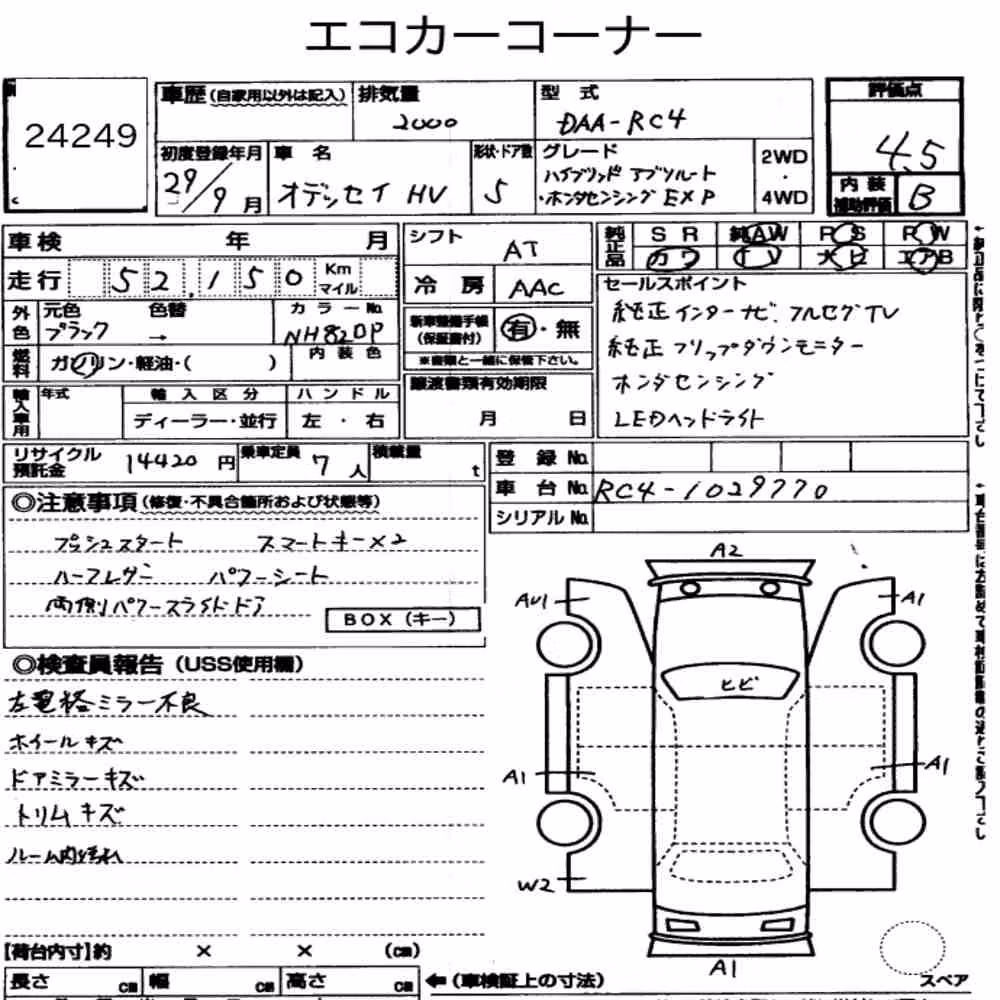 エコカーコーナー
24249
車歴(自家用以外は記入)
排気量
2000
型式
DAA-RC4
評価点
4.5
内装
補助評価
B
初度登録年月
29/9月
車名
オデッセイ HV
形状・ドア数
5
グレード
ハイブリッド アブソルート
・ホンダセンシング EXP
2WD
・
4WD
車検 年 月
走行 52,150 Km
マイル
シフト
AT
冷房 AAC
純正品
SR 純AW PS PW
カワ TV ナビ エアB
外色
元色 色替
ブラック →
カラーNo.
NH820P
燃料
ガソリン・軽油・( )
内装色
新車整備手帳
(保証書付)
有・無
※書類と一緒に保管下さい。
セールスポイント
純正インターナビ、フルセグTV
純正フリップダウンモニター
ホンダセンシング
LEDヘッドライト
輸入車用
年式
輸入区分
ディーラー・並行
ハンドル
左・右
譲渡書類有効期限
月 日
リサイクル
預託金
14420 円
乗車定員
7人
積載量
t
登録No.
車台No. RC4-1029770
シリアルNo.
◎注意事項(修復・不具合箇所および状態等)
プッシュスタート スマートキー×2
ハーフレザー パワーシート
両側パワースライドドア
BOX(キー)
◎検査員報告(USS使用欄)
左電格ミラー不良
ホイールキズ
ドアミラーキズ
トリムキズ
ルーム内汚れ
A2
AU1
A1
ヒビ
A1
A1
W2
A1
スペア
【荷台内寸】約 × × (cm)
長さ cm 幅 cm 高さ cm
←(車検証上の寸法)